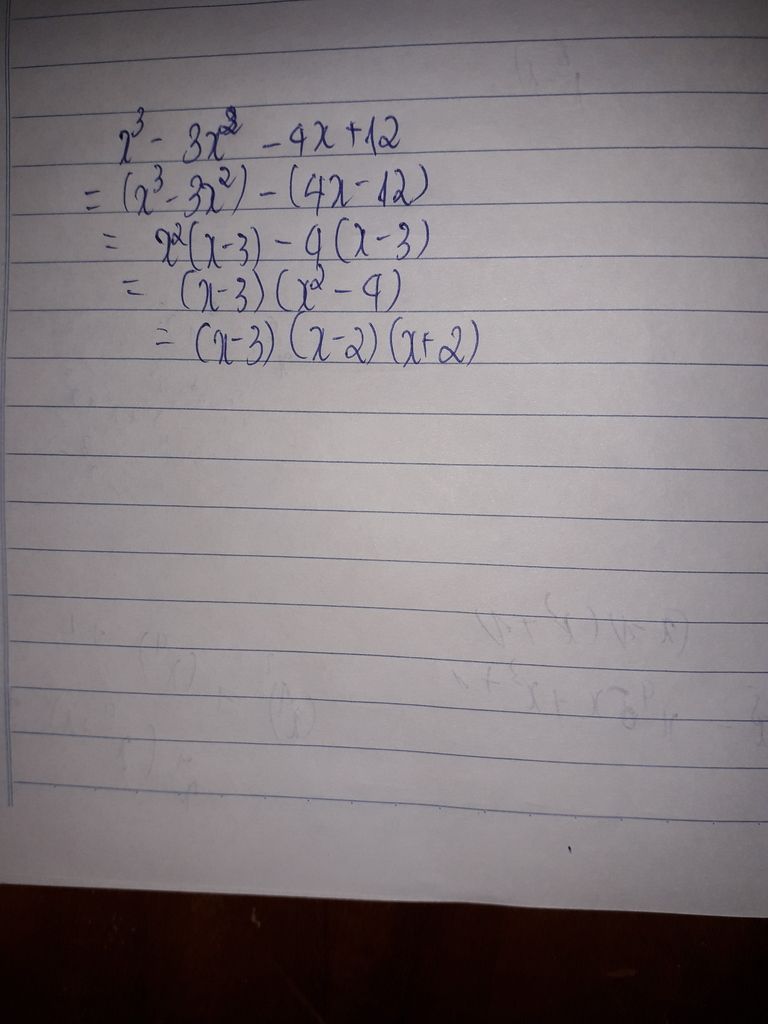 x³ - 3x² - 4x + 12
= (x³ - 3x²) - (4x - 12)
= x²(x-3) - 4(x-3)
= (x-3)(x² - 4)
= (x-3)(x-2)(x+2)